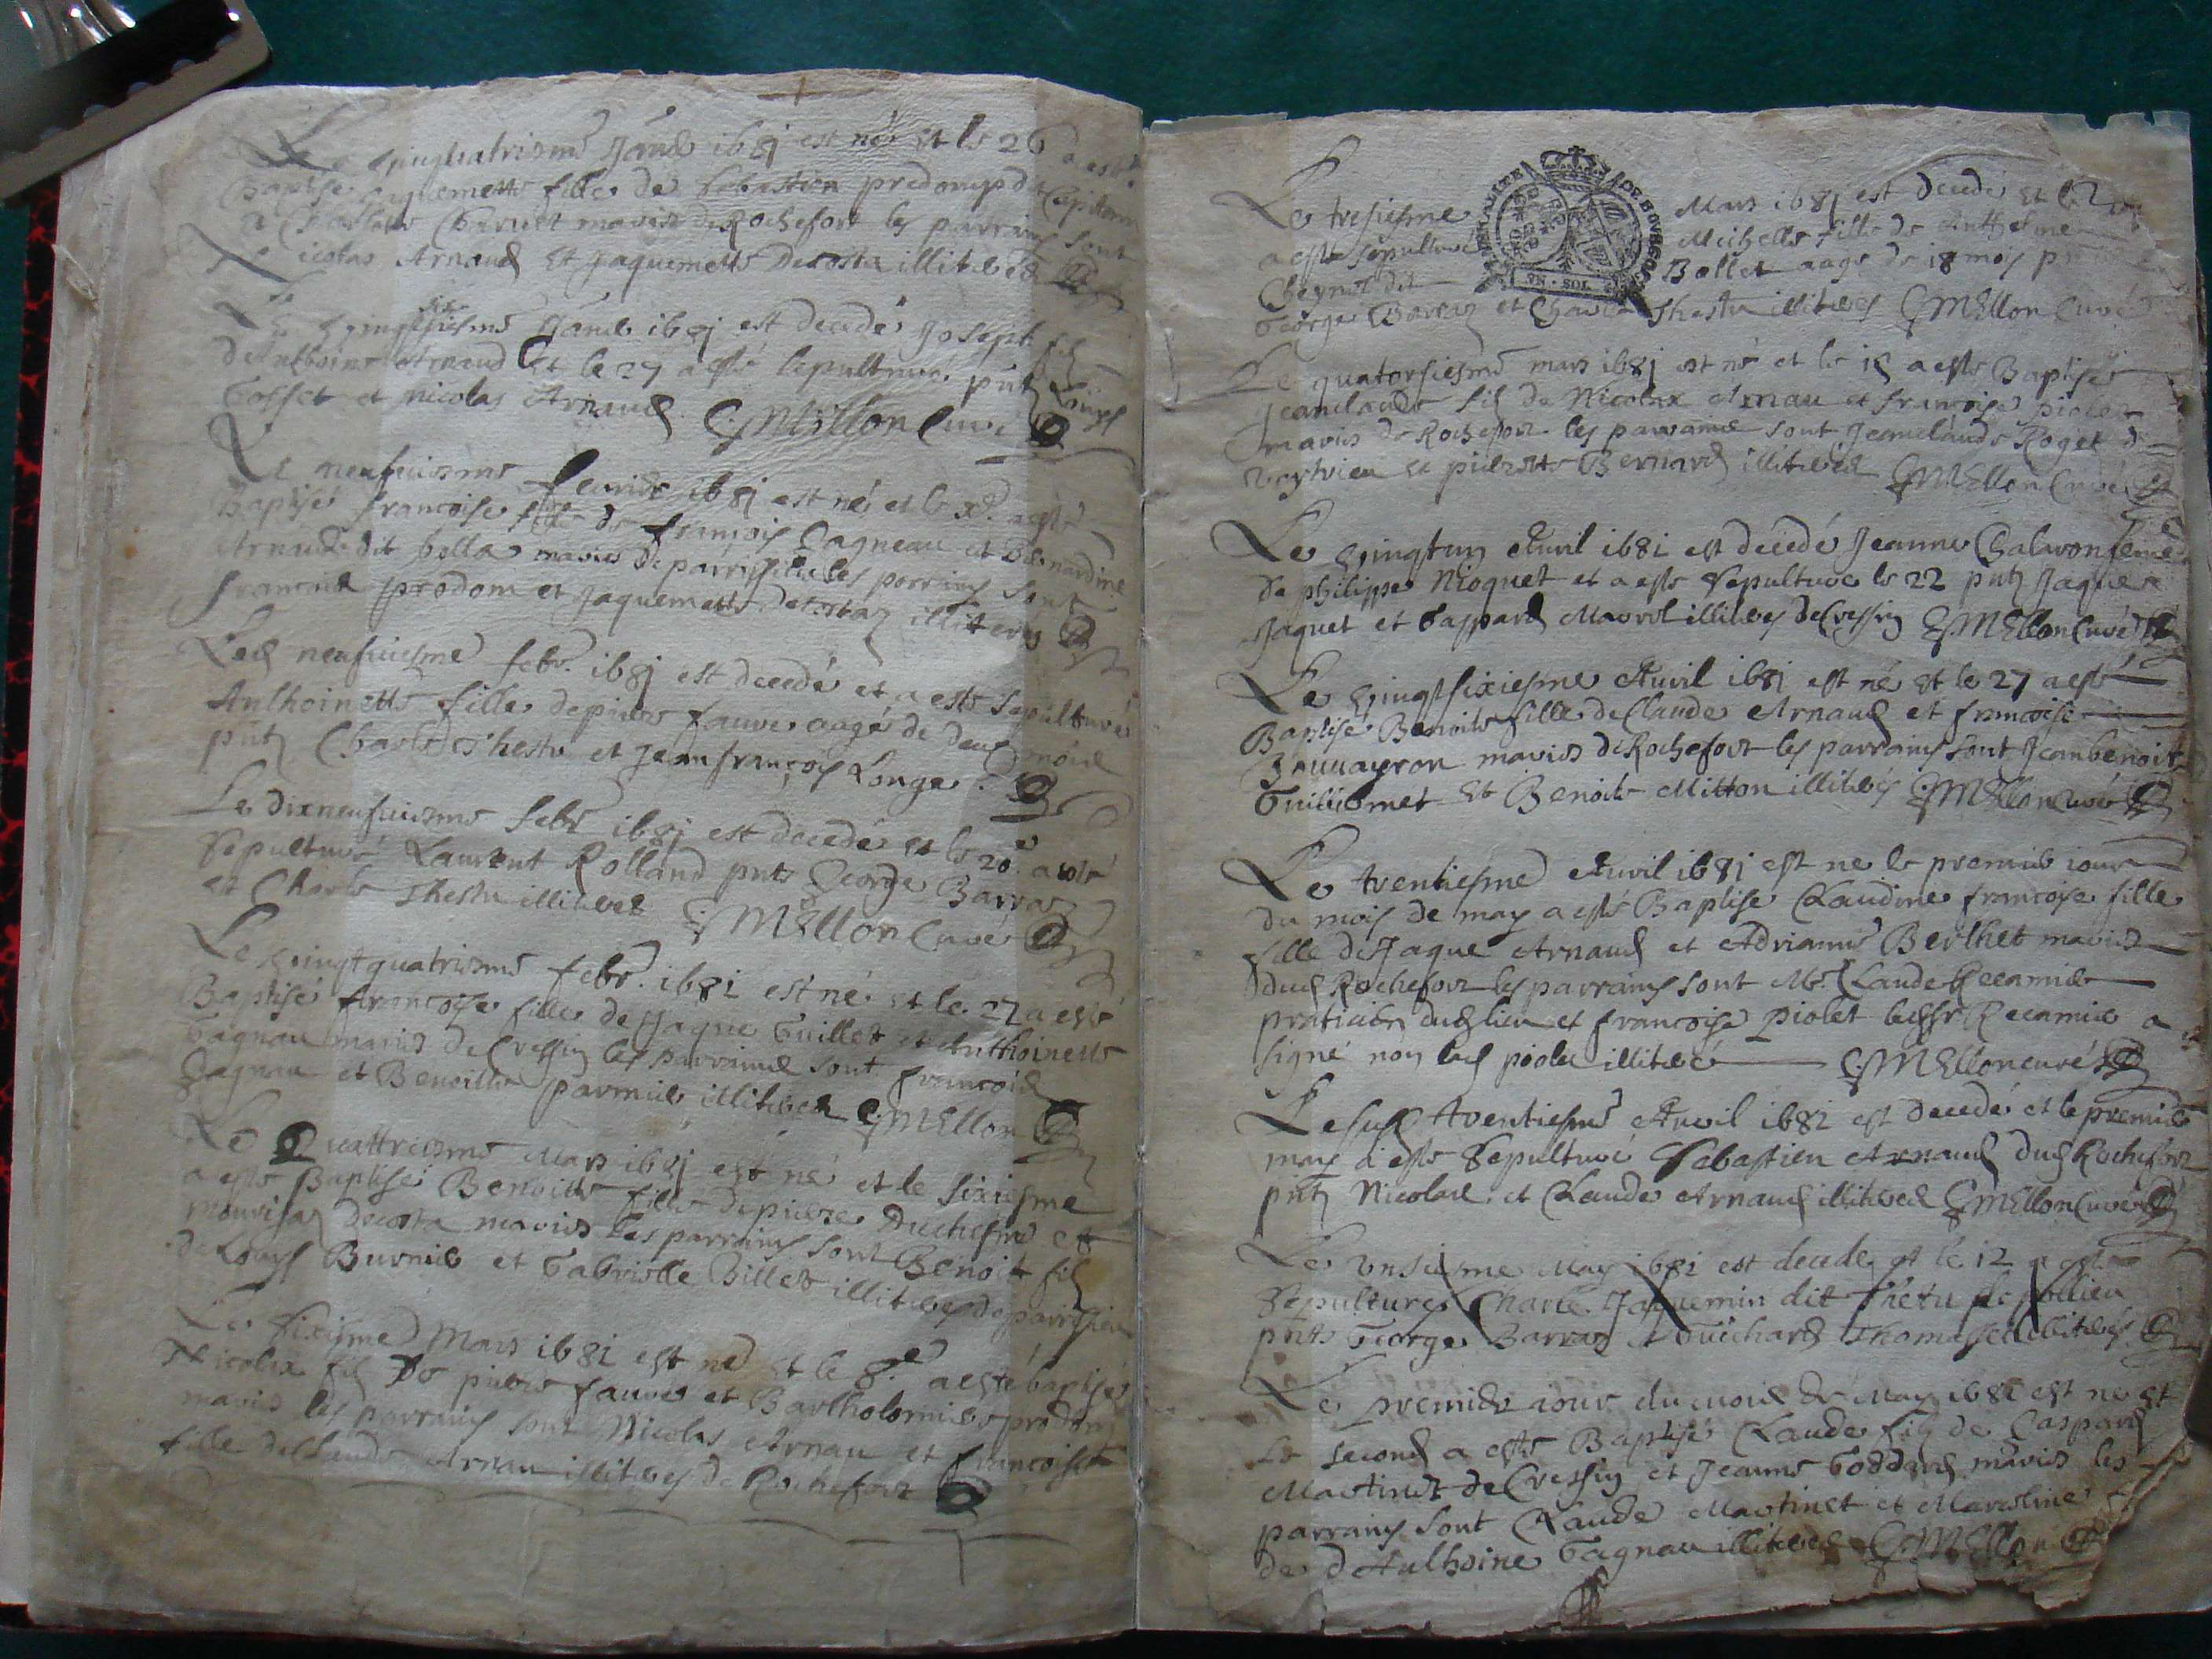 Le vingtquatriesme Janv 1681 est né et le 26 a esté
Baptisé Jaquemette fille de Sebastien Prodomps dit Capitan
a Charlotte Charvet mariez de Rochefort les parrains sont
Nicolas Arnaud et Jaquemette Decosta illiterés
Le vingtsixiesme Janv 1681 est decedé Joseph fils
de Anthoine Arnaud et le 27 a esté sepulturé pntz Louys
Gosset et Nicolas Arnaud C Mellon Curé
Le neufviesme febvrier 1681 est né et le xe a esté
Baptisé francoise fille de francois Gagneau et Bernardine
Arnaud dit bolla mariés de parrissieu les parrains sont
francois prodom et Jaquemette Decostaz illiterés
Led neufviesme febr. 1681 est decedé et a esté sepulturé
Anthoinette fille de pierre fauvre aagé de deux mois
pntz Charle Thestu et Jean francois Longe
Le dixneufviesme febr 1681 est decedé et le 20e a esté
sepulturé Laurent Rolland pnts George Barraz
et Charle Thestu illiteres C Mellon Curé
Le vingtquatriesme febr. 1681 est né et le 27 a esté
Baptisé francoise fille de Jaque Guillet et Anthoinette
Gagnau mariés de Cressin les parrains sont francois
Gagnau et Benoitte parmier illiteres C Mellon
Le Quattriesme Mars 1681 est né et le sixiesme
a esté Baptisé Benoitte fille de pierre Duchesne et
Decosta mariés les parrains sont Benoit fils
de Louys Burnier et Gabrielle Billet illiteres de parrissieu
Le sixisme Mars 1681 est né et le 8e a esté baptisé
Nicolas fils De pierre fauvre et Bartholomie prodom
mariés les parrains sont Nicolas Arnau et francoise
fille de Claude Arnau illiteres de Rochefort
Le tresiesme Mars 1681 est decedé et le
a esté sepulturé Michelle fille de Anthelme
Cheynet dit Bollet aagé de 18 mois
George Barraz et Charle Thestu illiteres C Mellon Curé
GENERALITE DE BOURGOG
VN · SOL
Le quatorsiesme mars 1681 est né et le 15 a esté Baptisé
Jeanclaude fils de Nicolas Arnau et francoise piolet
mariés de Rochefort les parrains sont Jeanclaude Roget de
veyrieu et pierrette Bernard illiteres C Mellon Curé
Le vingtun Avril 1681 est decedé Jeanne Chalavon feme
de philippe Nioquet et a esté sepulturé le 22 pntz Jaque
Jaquet et Gaspard Mavrol illiteres de Cressin C Mellon Curé
Le vingtsixiesme Avril 1681 est né et le 27 a esté
Baptisé Benoite fille de Claude Arnaud et francoise
Jauvayron mariés de Rochefort les parrains sont Jeanbenoit
Guiliermet et Benoite Mitton illiteres C Mellon Curé
Le trentiesme Avril 1681 est né le premier iour
du mois de may a esté Baptisé Claudine francoise fille
fille de Jaque Arnaud et Adrianne Berthet mariés
dud Rochefort les parrains sont Mr Claude Recamier
praticien dud lieu et francoise piolet ledit Sr Recamier a
signé non lad piolet illiteré C Mellon curé
Le sud trentiesme Avril 1681 est decedé et le premier
may a esté sepulturé Sebastien Arnaud dud Rochefort
pntz Nicolas et Claude Arnaud illiteres C Mellon Curé
Le unsiesme May 1681 est decede et le 12 a esté
sepulturé Charle Jaquemin dit Thetu de pollieu
pnts George Barraz et Guichard Thomasset illiteres
Le premier iour du mois de May 1681 est né et
le second a esté Baptisé Claude fils de Gaspard
Martinet de Cressin et Jeanne Goddard mariés les
parrains sont Claude Martinet et
de d Anthoine Gagnau illiteres C Mellon